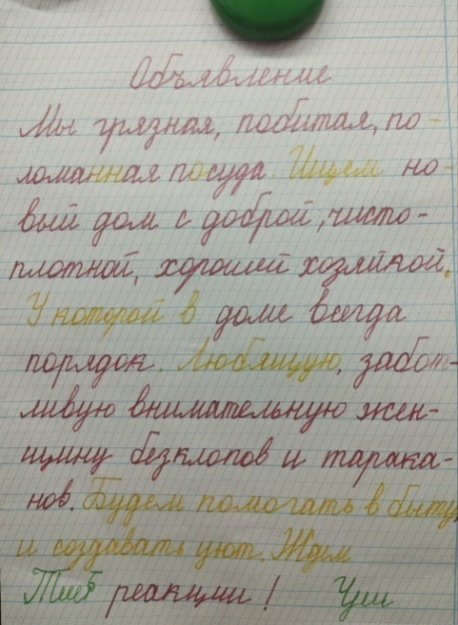 Объявление
Мы грязная, побитая, по-
ломанная посуда. Ищем но-
вый дом с доброй, чисто-
плотной, хорошей хозяйкой.
У которой в доме всегда
порядок. Любящую, забот-
ливую внимательную жен-
щину безклопов и тарака-
нов. Будем помогать в быту,
и создавать уют. Ждем
реакции!